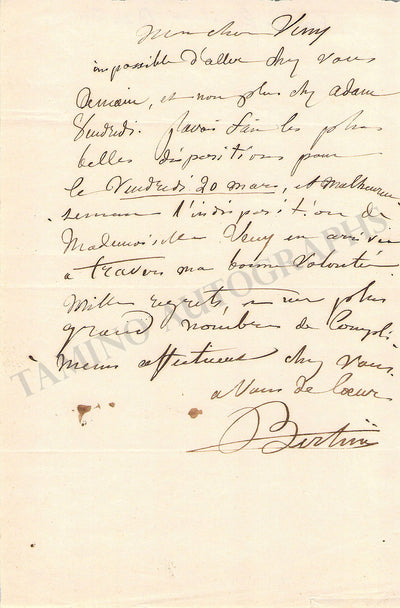 Mon cher Veny
impossible d'aller chez vous
Demain, et non plus chez adam
Vendredi. J'avais fait les plus
belles dispositions pour
le Vendredi 20 mars, et malheureu-
sement l'indisposition de
Mademoiselle Veny en arrive
a travers ma bonne volonté.
Mille regrets, et un plus
grand nombre de Compli-
mens affectueux chez vous.
a vous de Coeur
Bertini
TAMINO AUTOGRAPHS